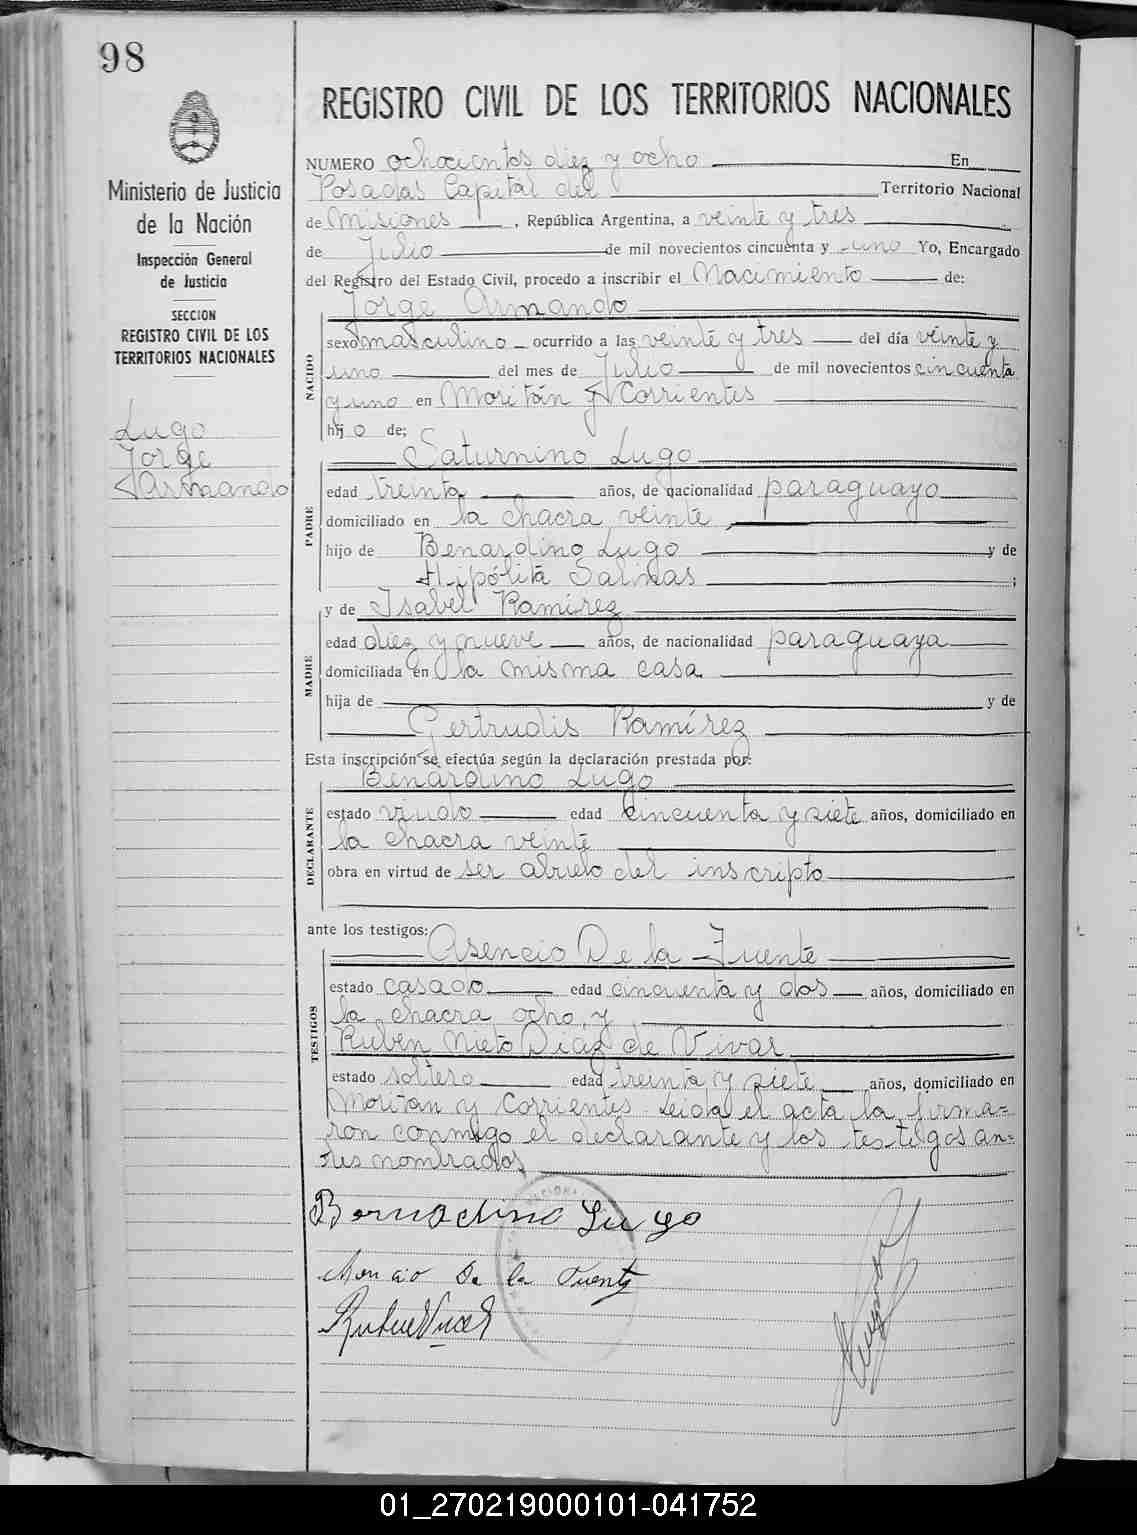 98
Ministerio de Justicia
de la Nación
Inspección General
de Justicia
SECCION
REGISTRO CIVIL DE LOS
TERRITORIOS NACIONALES
Lugo
Jorge
Armando
REGISTRO CIVIL DE LOS TERRITORIOS NACIONALES
NUMERO ochocientos diez y ocho En
Posadas Capital del Territorio Nacional
de Misiones, República Argentina, a veinte y tres
de Julio de mil novecientos cincuenta y uno Yo, Encargado
del Registro del Estado Civil, procedo a inscribir el Nacimiento de:
Jorge Armando
NACIDO
sexo masculino ocurrido a las veinte y tres del día veinte y
uno del mes de Julio de mil novecientos cincuenta
y uno en Moritán y Corrientes
hijo de;
Saturnino Lugo
PADRE
edad treinta años, de nacionalidad paraguayo
domiciliado en la chacra veinte
hijo de Benardino Lugo y de
Hipólita Salinas;
y de Isabel Ramírez
MADRE
edad diez y nueve años, de nacionalidad paraguaya
domiciliada en la misma casa
hija de y de
Gertrudis Ramírez
Esta inscripción se efectúa según la declaración prestada por:
Benardino Lugo
DECLARANTE
estado viudo edad cincuenta y siete años, domiciliado en
la chacra veinte
obra en virtud de ser abuelo del inscripto
ante los testigos:
Asencio De la Fuente
TESTIGOS
estado casado edad cincuenta y dos años, domiciliado en
la chacra ocho, y
Rubén Nieto Díaz de Vivar
estado soltero edad treinta y siete años, domiciliado en
Moritan y Corrientes. Leida el acta la firma=
ron conmigo el declarante y los testigos an=
tes nombrados
Bernardino Lugo
De la Fuente
01_270219000101-041752